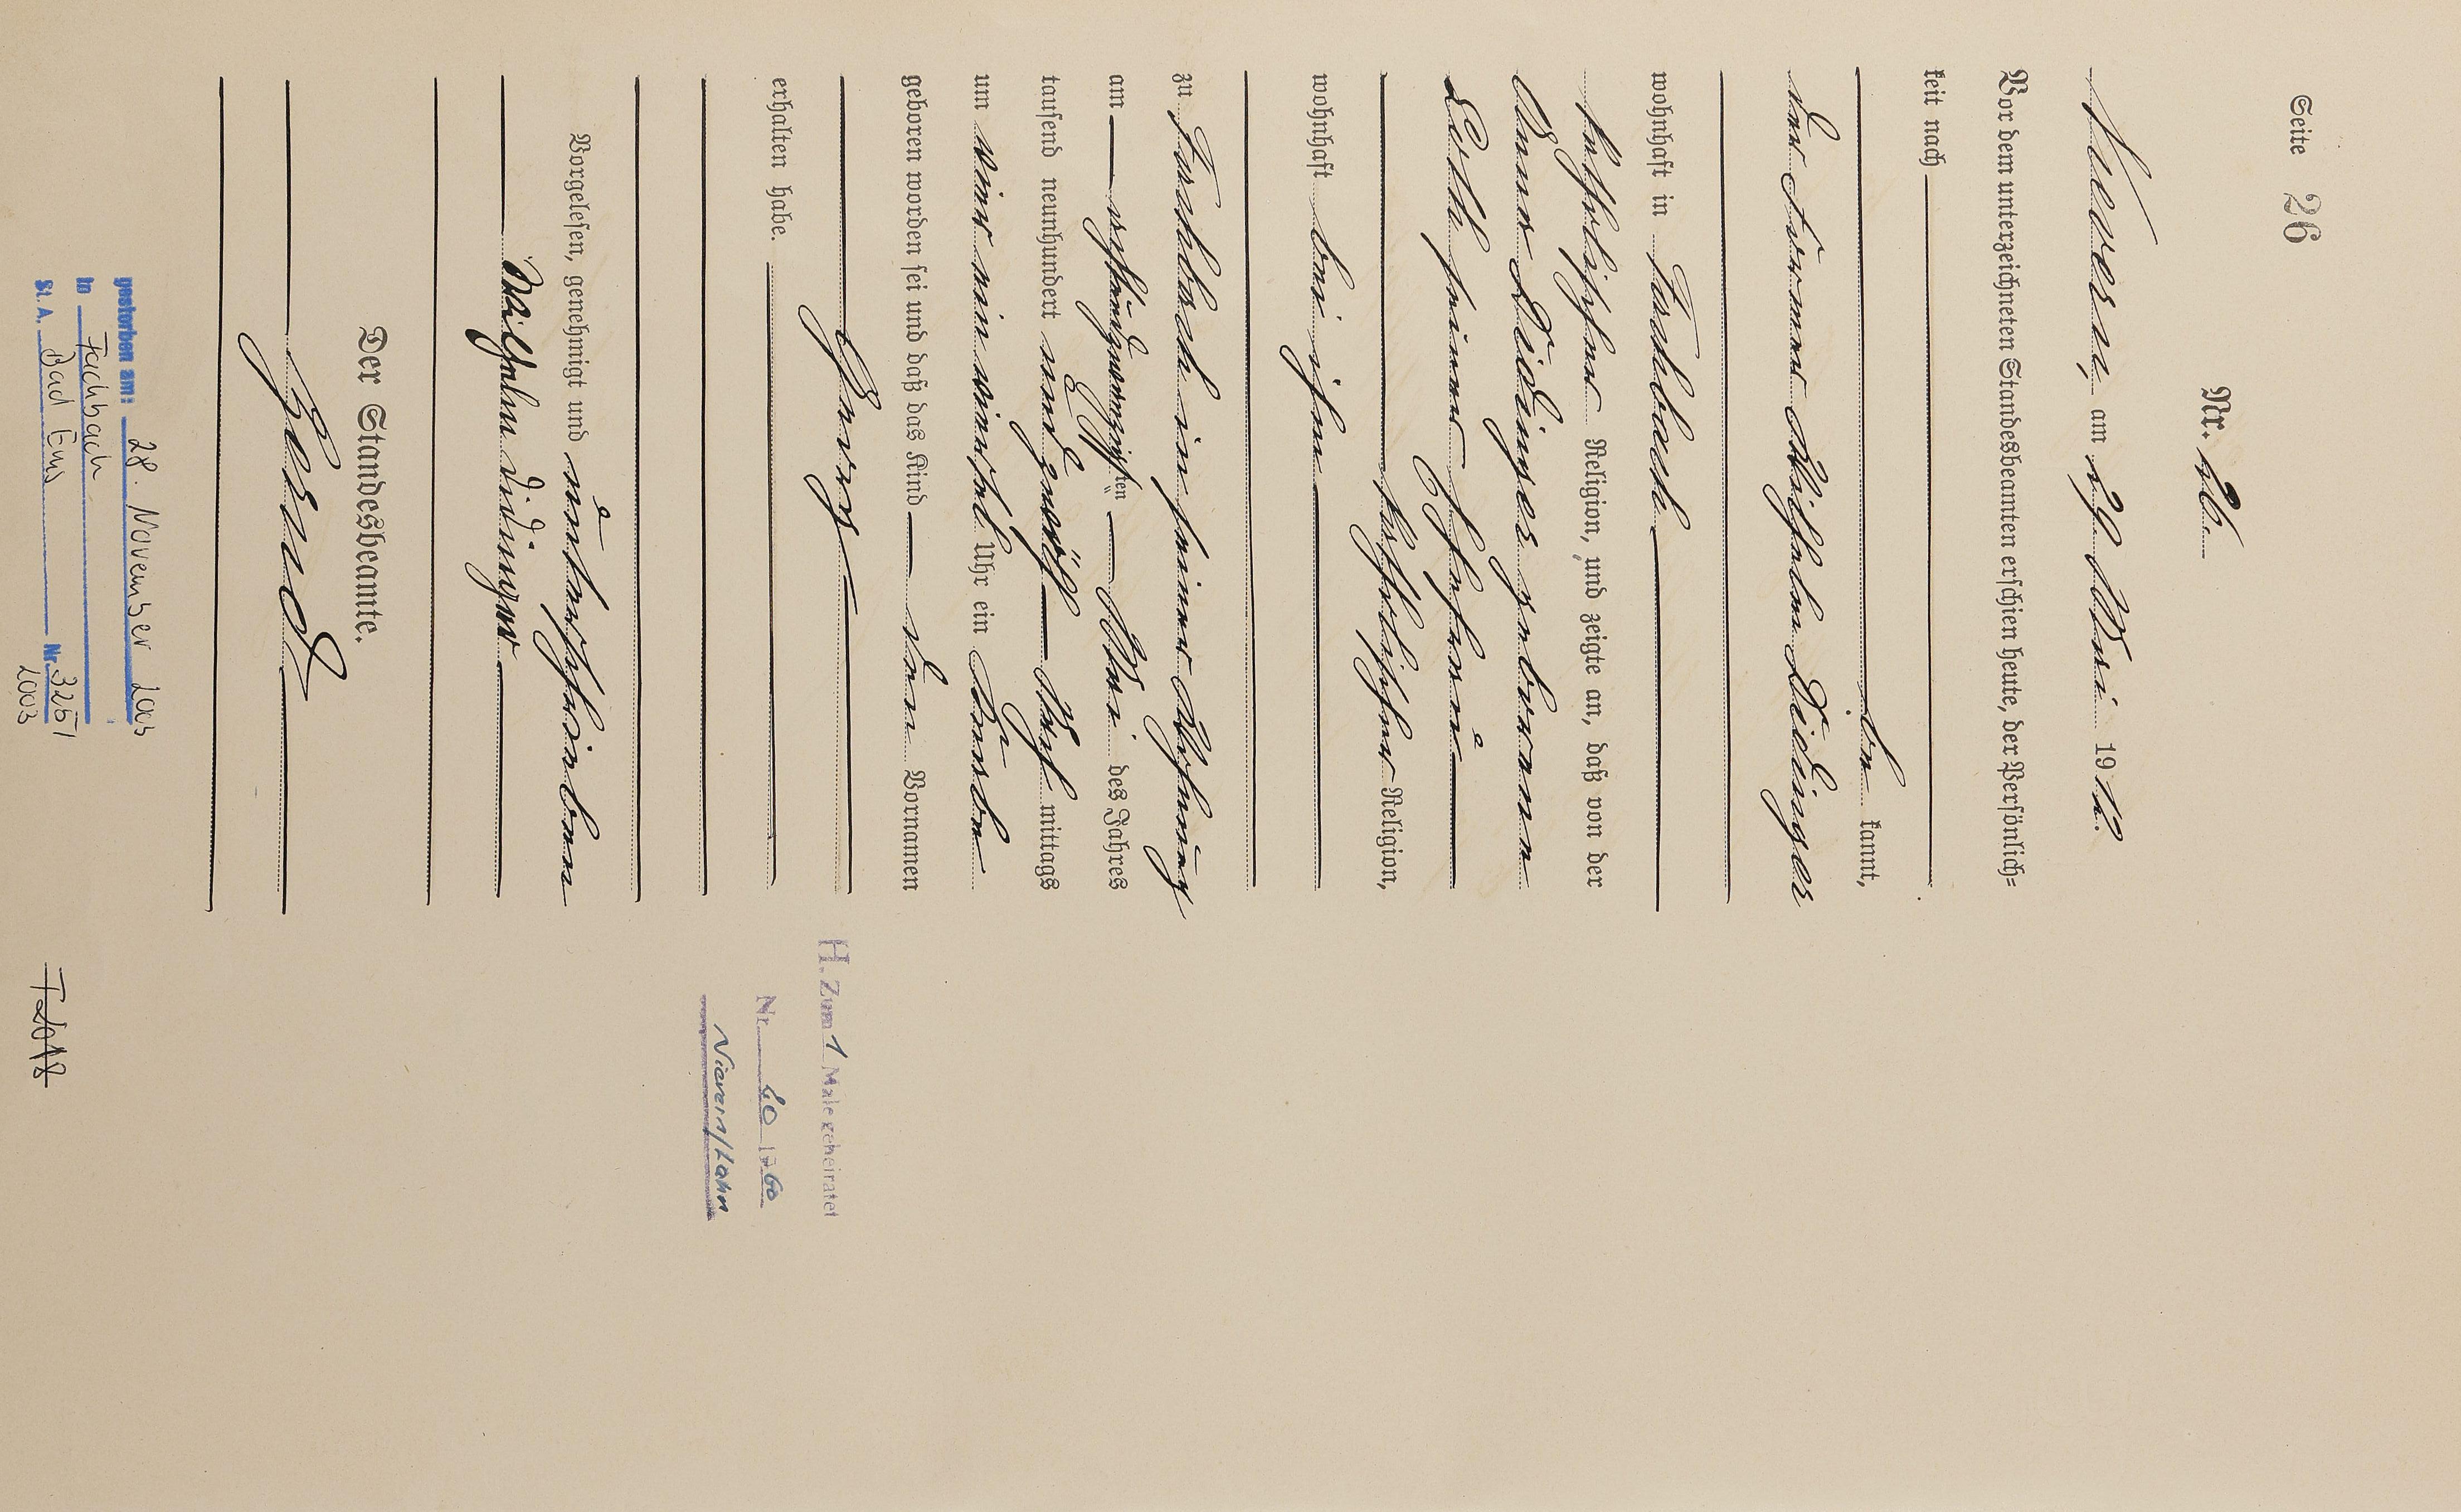 Seite 26
Nr. 26.
Nievern, am 29. Mai 1912.
Vor dem unterzeichneten Standesbeamten erschien heute, der Persönlich=
keit nach
be kannt,
der Former Wilhelm Didinger
wohnhaft in Fachbach
katholischer Religion, und zeigte an, daß von der
Anna Didinger geborenen
seiner Ehefrau
katholischer Religion,
wohnhaft bei ihm
zu Fachbach in seiner Wohnung
am achtundzwanzigsten Mai des Jahres
tausend neunhundert und zwölf Nach mittags
um vier ein viertel Uhr ein Knabe
geboren worden sei und daß das Kind den Vornamen
Georg
erhalten habe.
Vorgelesen, genehmigt und unterschrieben
Wilhelm Didinger
Der Standesbeamte.
H. Zum 1 Male geheiratet
Nr. 20 1960
Nievern/Lahn
gestorben am: 28. November 2003
in Fachbach
St. A. Bad Ems Nr. 325/
2003